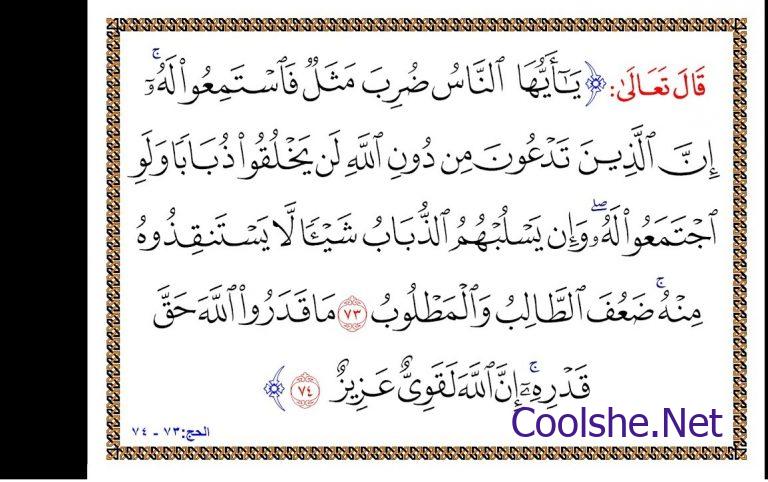 قَالَ تَعَالَىٰ: ﴿يَـٰٓأَيُّهَا ٱلنَّاسُ ضُرِبَ مَثَلٞ فَٱسۡتَمِعُواْ لَهُۥٓۚ
إِنَّ ٱلَّذِينَ تَدۡعُونَ مِن دُونِ ٱللَّهِ لَن يَخۡلُقُواْ ذُبَابٗا وَلَوِ
ٱجۡتَمَعُواْ لَهُۥۖ وَإِن يَسۡلُبۡهُمُ ٱلذُّبَابُ شَيۡـٔٗا لَّا يَسۡتَنقِذُوهُ
مِنۡهُۚ ضَعُفَ ٱلطَّالِبُ وَٱلۡمَطۡلُوبُ ٧٣ مَا قَدَرُواْ ٱللَّهَ حَقَّ
قَدۡرِهِۦٓۚ إِنَّ ٱللَّهَ لَقَوِيٌّ عَزِيزٌ ٧٤﴾
الحج: ٧٣ - ٧٤
Coolshe.Net